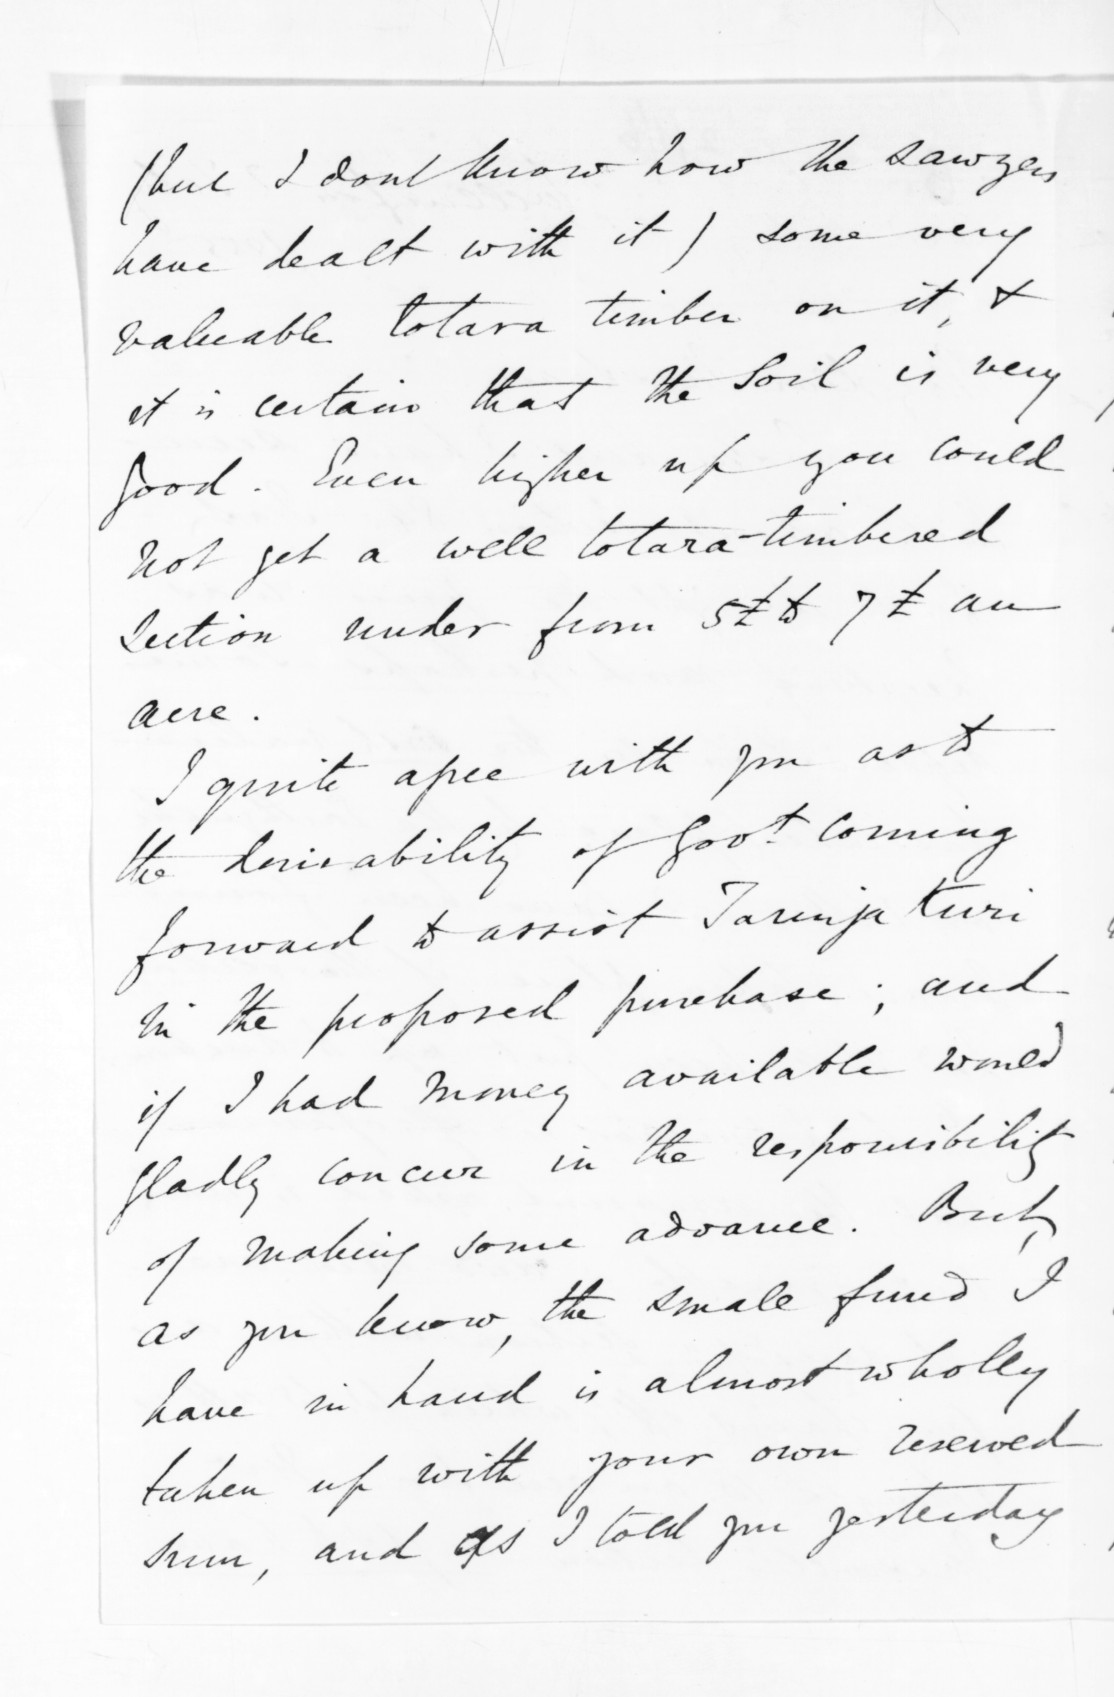 (but I dont know how the sawyers
have dealt with it) some very
valuable totara timber on it, &
it is certain that the Soil is very
good. Even higher up you could
not get a well totara-timbered
section under from 5£ to 7£ an
acre.
I quite agree with you as to
the desirability of Govt. coming
forward to assist Tareha Turi
in the proposed purchase; and
if I had money available would
gladly concur in the responsibility
of making some advance. But,
as you know, the small fund I
have in hand is almost wholly
taken up with your own reserved
sum, and as I told you yesterday